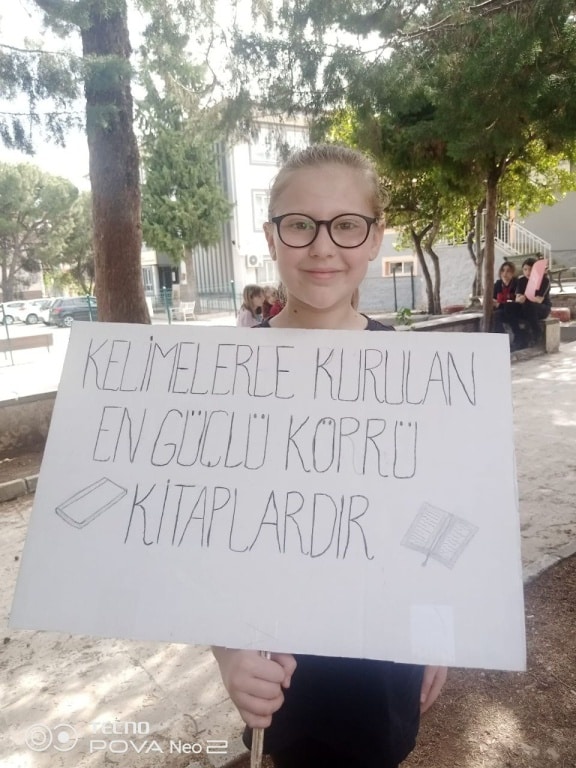 KELİMELERLE KURULAN
EN GÜÇLÜ KÖPRÜ
KİTAPLARDIR
TECNO
POVA Neo 2